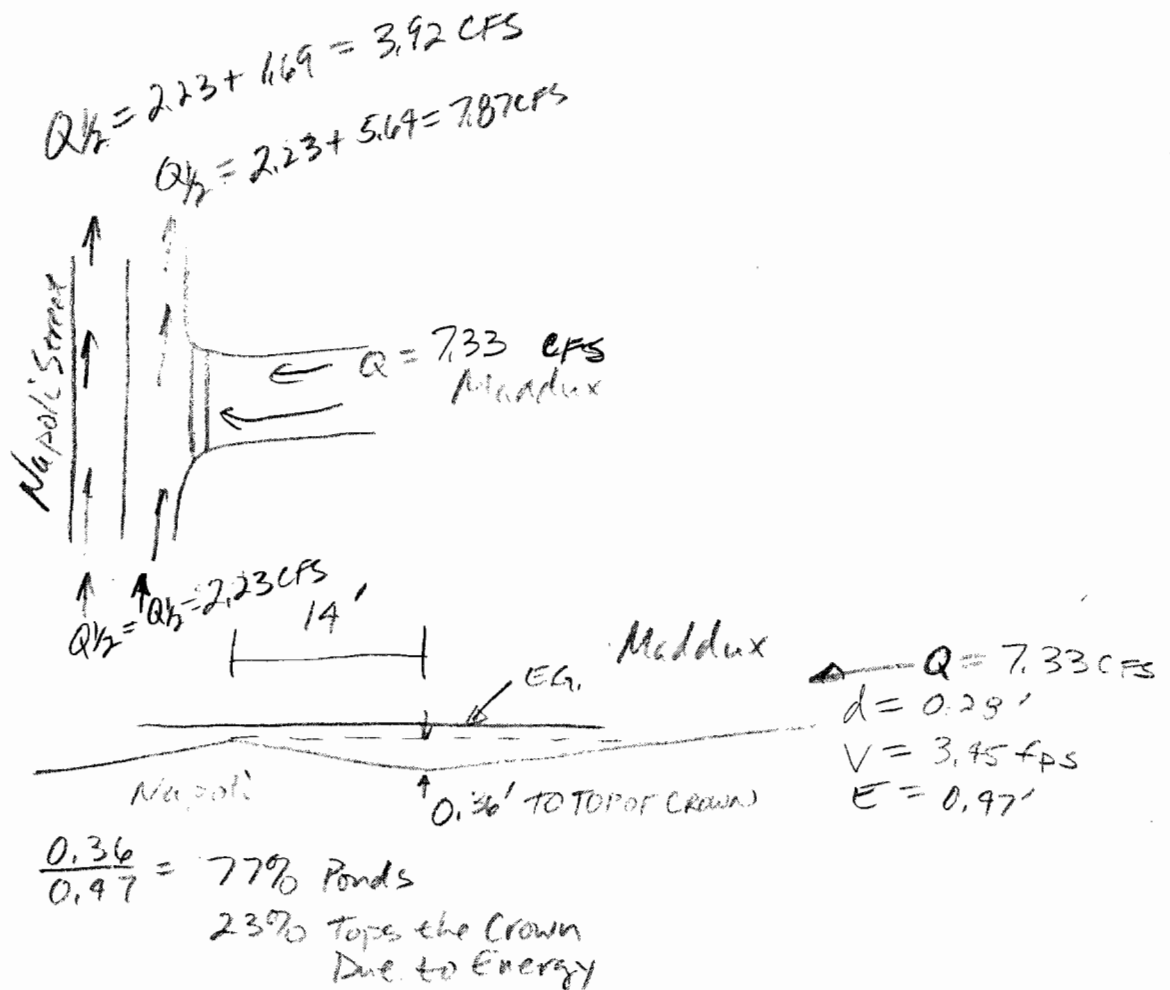 Q½ = 2.23 + 1.69 = 3.92 CFS
Q½ = 2.23 + 5.64 = 7.87 CFS
Napoli Street
Q = 7.33 CFS
Maddux
Q½ = Q½ = 2.23 CFS
14'
Maddux
E.G.
Q = 7.33 CFS
d = 0.28'
V = 3.45 fps
E = 0.47'
Napoli
0.36' TO TOP OF CROWN
0.36
0.47
= 77% Ponds
23% Tops the Crown
Due to Energy